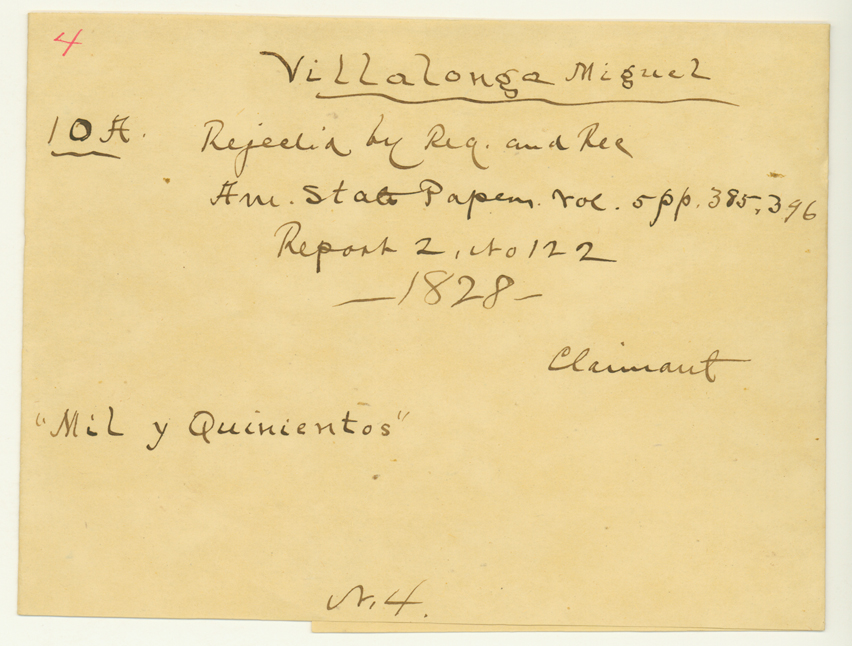 4
Villalonga Miguel
10 A. Rejected by Reg. and Rec
Am. State Papers. Vol. 5 pp. 385, 396
Report 2, No 122
— 1828 —
Claimant
"Mil y Quinientos"
N. 4.